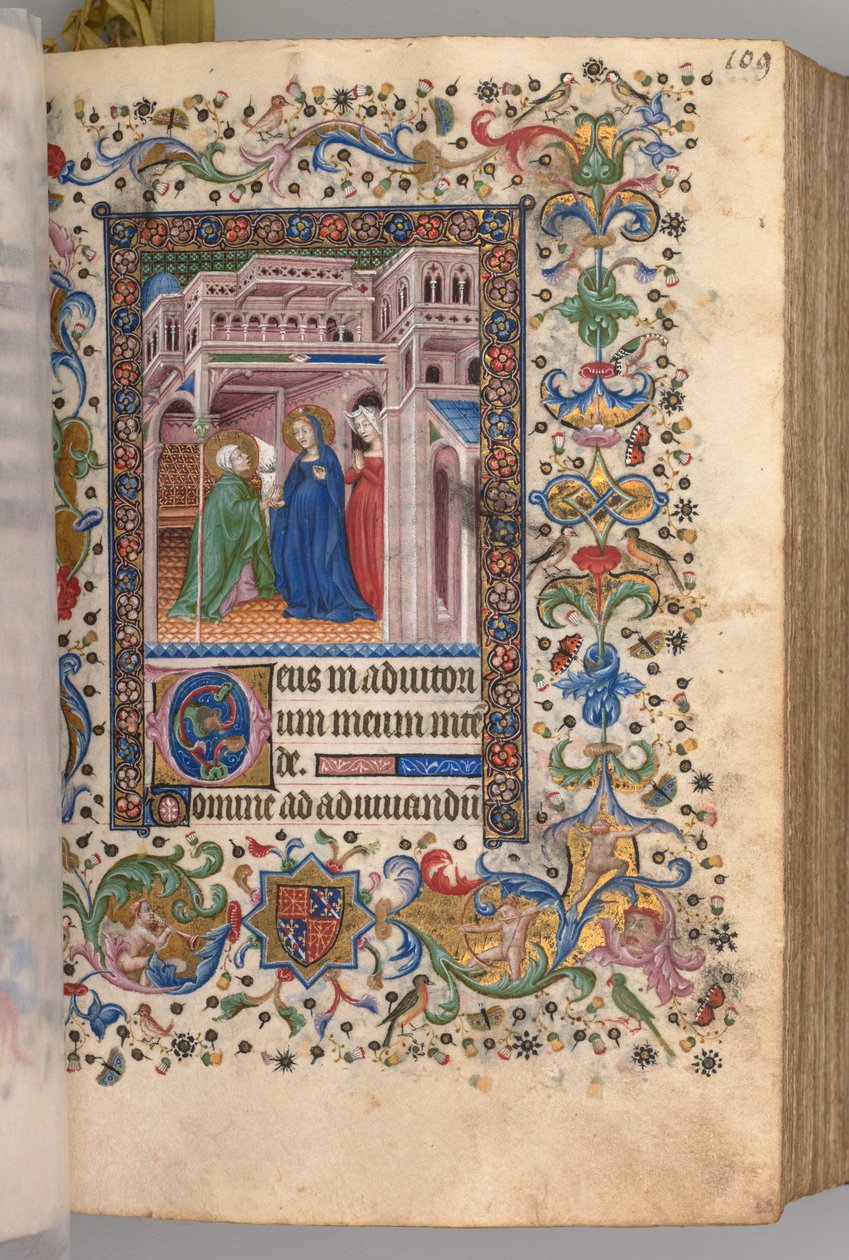 109
Deus in adiutori
um meum intē
de.
Domine ad adiuuandū